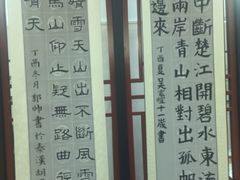 中斷楚江開碧水東流
兩岸青山相對出孤帆
邊來
丁酉夏吴
十一歲書
積雪天山出不斷風雪
馬山仰止疑無路曲
有天
丁酉冬月郭帅書於秦漢胡